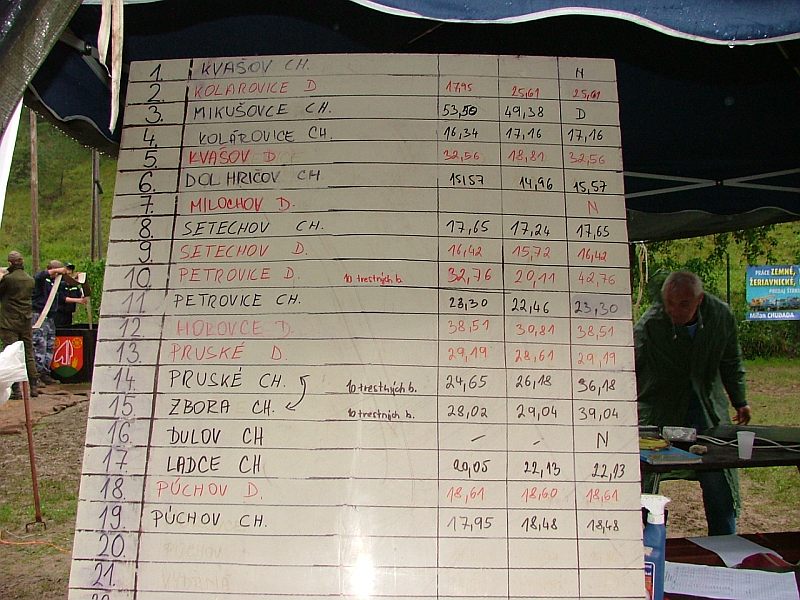 1. KVAŠOV CH. N
2. KOLAROVICE D 17,95 25,61 25,61
3. MIKUŠOVCE CH. 53,50 49,38 D
4. KOLÁROVICE CH. 16,34 17,16 17,16
5. KVAŠOV D. 32,56 18,81 32,56
6. DOL HRIČOV CH 15,57 14,96 15,57
7. MILOCHOV D. N
8. SETECHOV CH. 17,65 17,24 17,65
9. SETECHOV D. 16,42 15,72 16,42
10. PETROVICE D. 10 trestných b. 32,76 20,11 42,76
11 PETROVICE CH. 23,30 22,46 23,30
12. HOROVCE D. 38,51 30,81 38,51
13. PRUSKÉ D. 29,19 28,61 29,19
14. PRUSKÉ CH. 10 trestných b. 24,65 26,18 36,18
15. ZBORA CH. 10 trestných b. 28,02 29,04 39,04
16. DULOV CH - - N
17. LADCE CH 20,05 22,13 22,13
18. PÚCHOV D. 18,61 18,60 18,61
19. PÚCHOV CH. 17,95 18,48 18,48
20. PÚCHOV
21.
PRÁCE ZEMNÉ,
ŽERIAVNICKÉ,
PREDAJ ŠTRKU
Milan CHUDADA